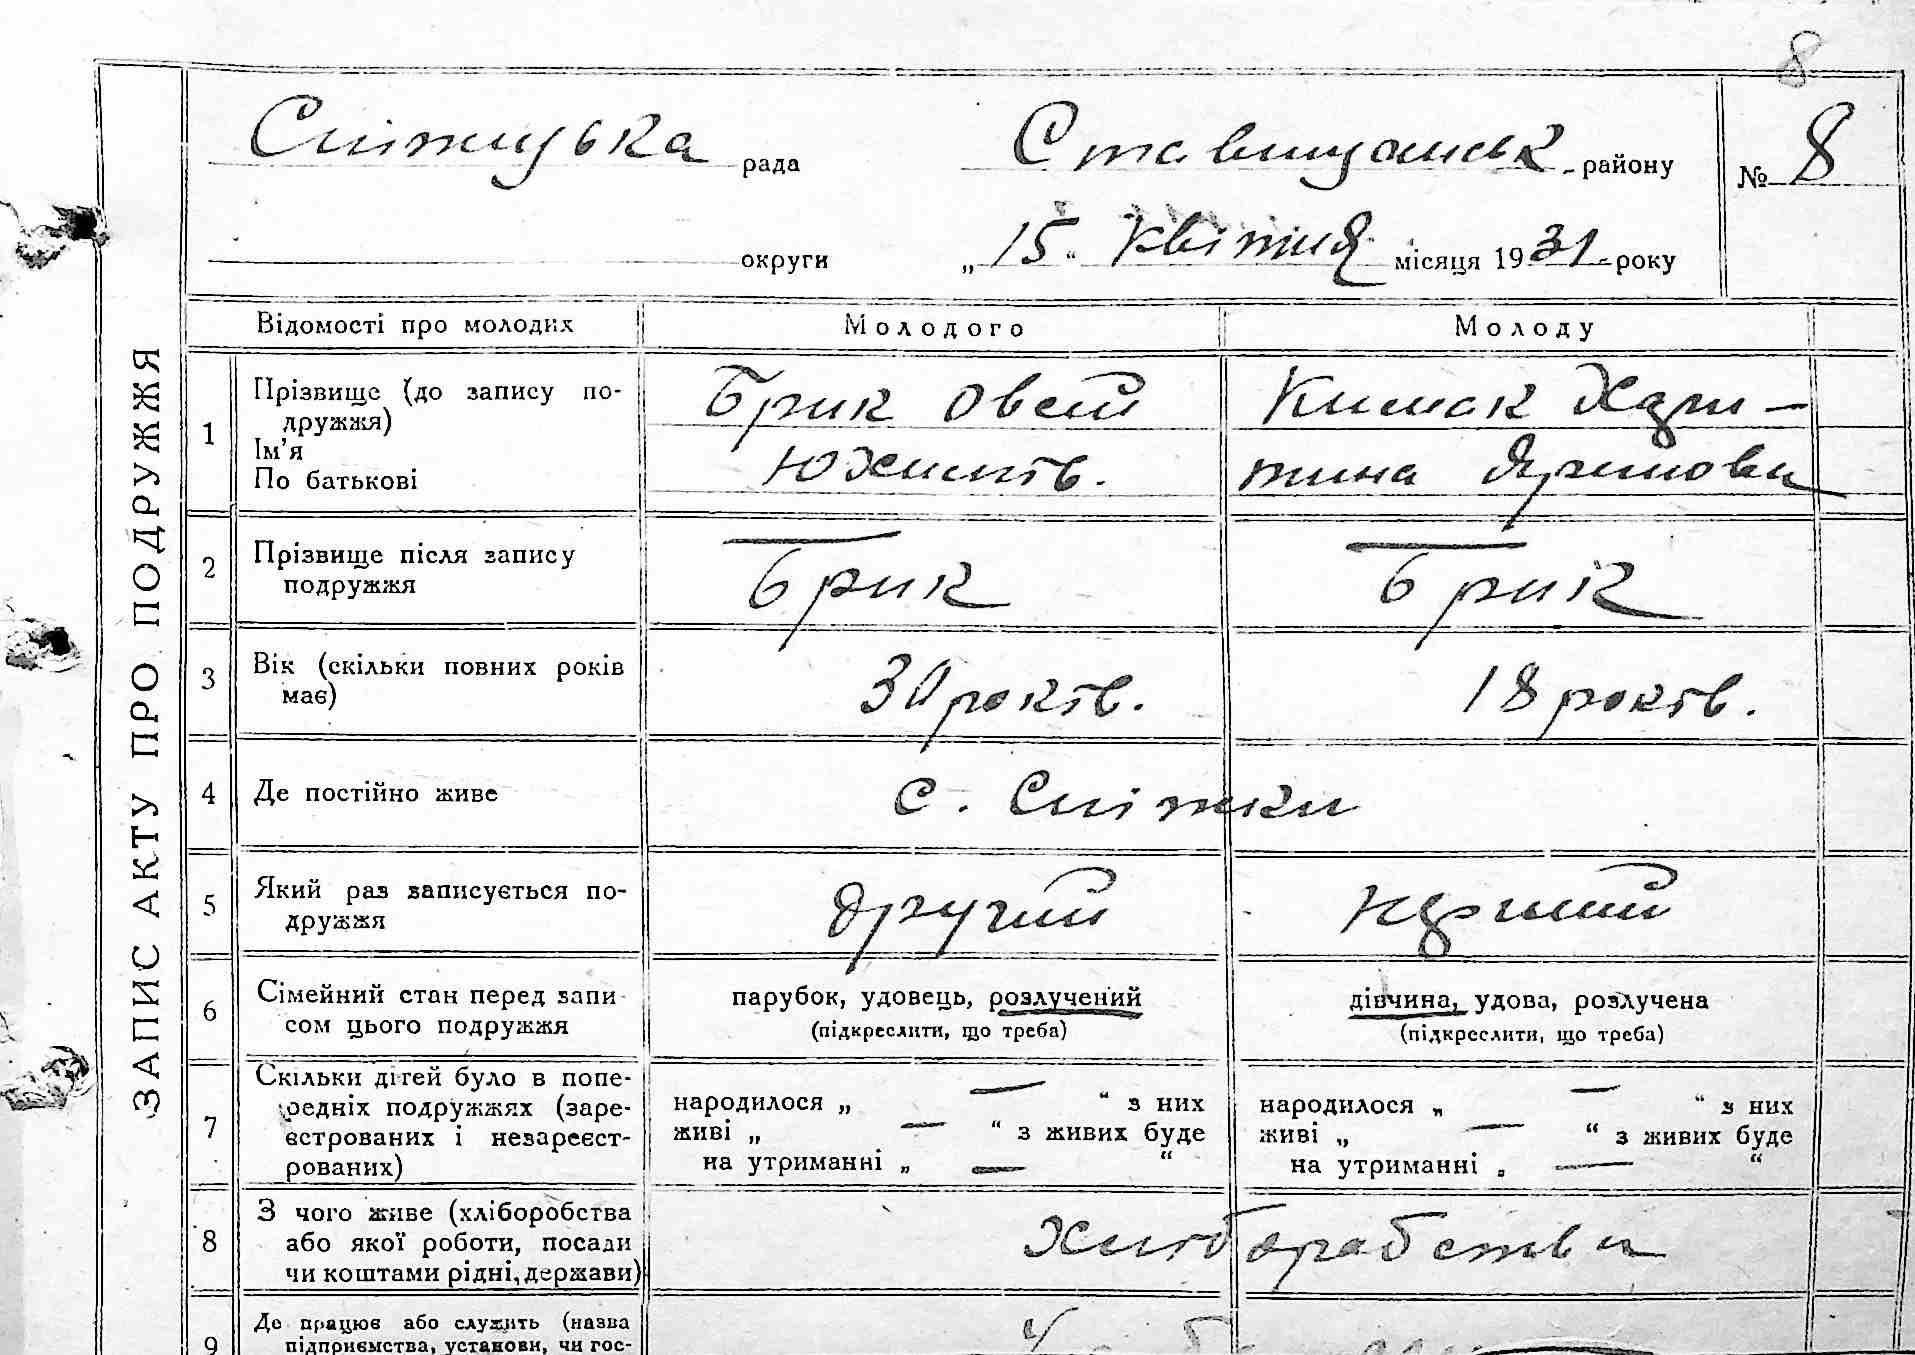 8
Сніжцька рада Ставищанськ. району № 8
округи „15“ квітня місяця 1931 року
ЗАПИС АКТУ ПРО ПОДРУЖЖЯ
Відомості про молодих Молодого Молоду
1 Прізвище (до запису по-
дружжя)
Ім’я
По батькові
Брик Овсій
Юхимів.
Кимак Хари-
тина Яримовн
2 Прізвище після запису
подружжя
Брик Брик
3 Вік (скільки повних років
має)
30 років. 18 років.
4 Де постійно живе с. Сніжки
5 Який раз записується по-
дружжя
другий перший
6 Сімейний стан перед запи
сом цього подружжя
парубок, удовець, розлучений
(підкреслити, що треба)
дівчина, удова, розлучена
(підкреслити, що треба)
7 Скільки дітей було в попе-
редніх подружжях (заре-
єстрованих і незареєст-
рованих)
народилося „ — “ з них
живі „ — “ з живих буде
на утриманні „ — “
народилося „ — “ з них
живі „ — “ з живих буде
на утриманні „ — “
8 З чого живе (хліборобства
або якої роботи, посади
чи коштами рідні, держави)
Хліборобства
9 Де працює або служить (назва
підприємства, установи, чи гос-